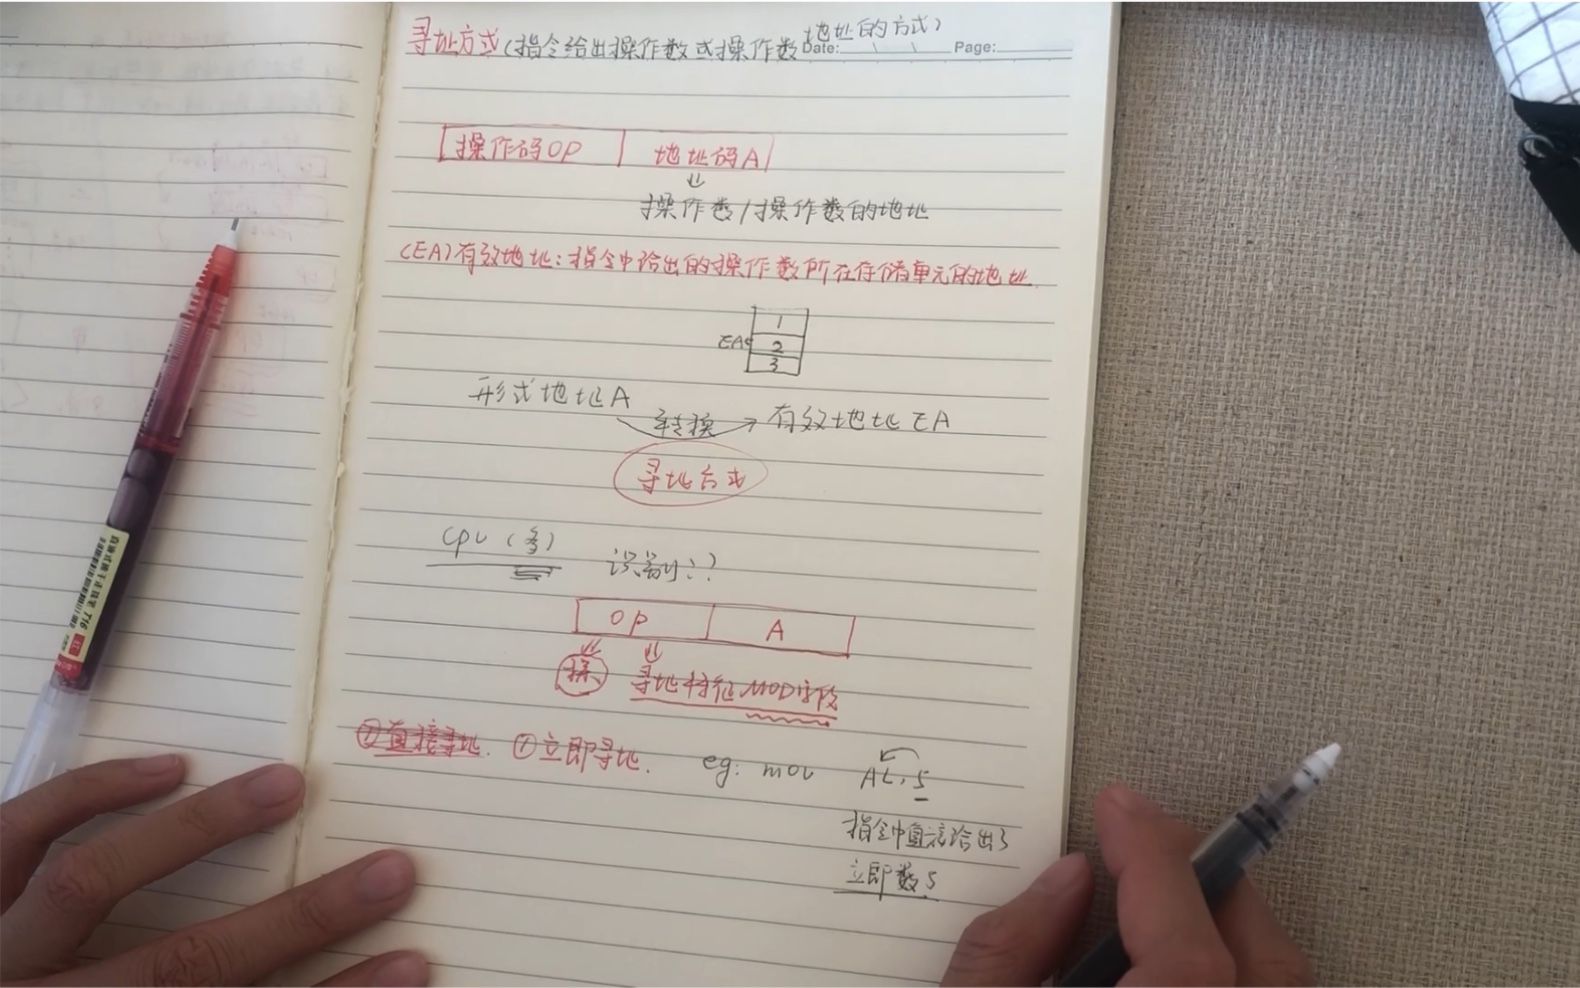 寻址方式(指令给出操作数或操作数地址的方式)
Date: Page:
操作码OP 地址码A
操作数/操作数的地址
(EA)有效地址:指令中给出的操作数所在存储单元的地址.
1
EA 2
3
形式地址A 转换 有效地址EA
寻址方式
CPU(多) 识别??
OP A
操 寻址特征MOD字段
①直接寻址. ①立即寻址. eg: mov AL,5
指令中直接给出了
立即数5